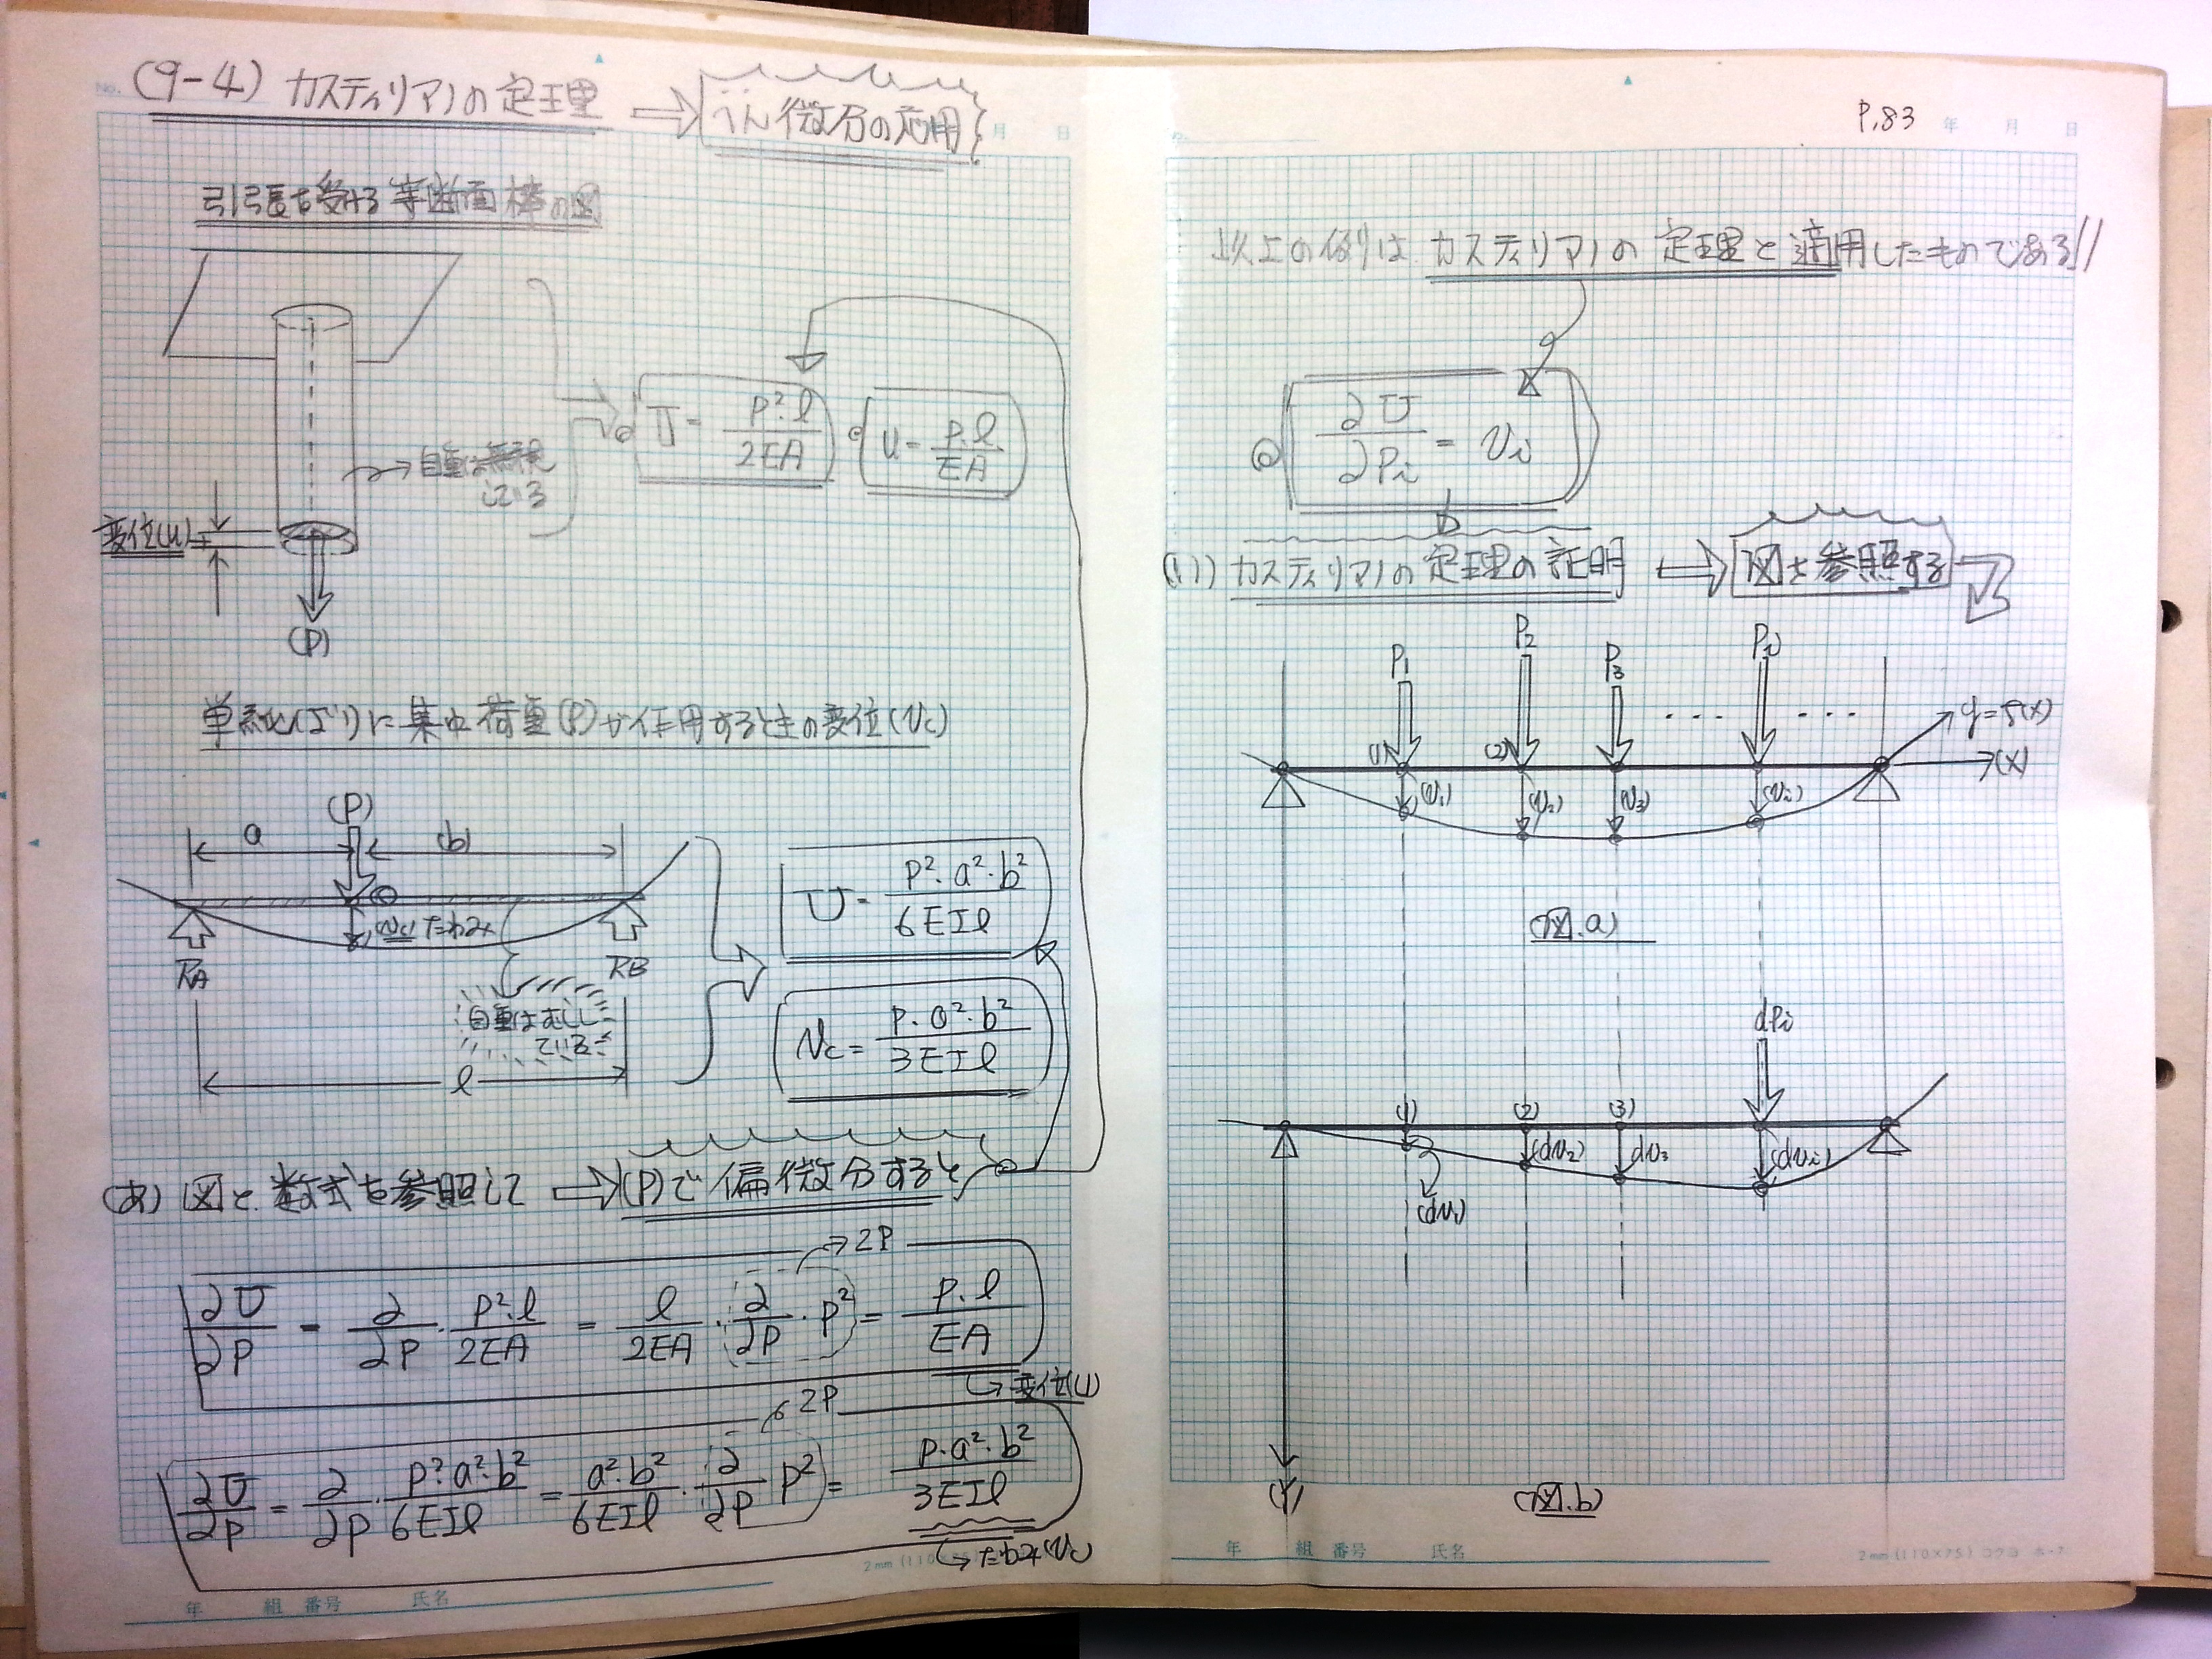 (9-4) カスティリアノの定理 ⇒ へん微分の応用
引張を受ける等断面棒の図
U = P²・l / 2EA
u = P.l / EA
自重は無視
している
変位(u)
(P)
単純(ばり)に集中荷重(P)が作用するときの変位(Vc)
(P)
a (b)
(Vc)たわみ
RA RB
自重はむし
している
l
U = P²・a²・b² / 6EIl
Vc = P・a²・b² / 3EIl
(あ) 図と数式を参照して ⇒ (P)で偏微分すると
→2P
∂U/∂P = ∂/∂P・P²・l/2EA = l/2EA・(∂/∂P・P²) = P.l/EA
→変位(u)
2P
∂U/∂P = ∂/∂P・P²・a²・b²/6EIl = a²・b²/6EIl・(∂/∂P P²) = P・a²・b²/3EIl
→たわみ(Vc)
2mm (110×75)
年 組 番号 氏名
No. 月 日
P.83 年 月 日
以上の例りは カスティリアノの定理と適用したものである//
∂U/∂Pi = Vi
(1) カスティリアノの定理の証明 ⇒ 図を参照する
P1 P2 P3 ・・・ Pi ・・・
y=f(x)
(1) (2) (x)
(V1) (V2) (V3) (Vi)
(図.a)
dPi
(1) (2) (3)
(dV1) (dV2) dV3 (dVi)
(Y) (図.b)
年 組 番号 氏名
2mm (110×75) コクヨ ホ-7